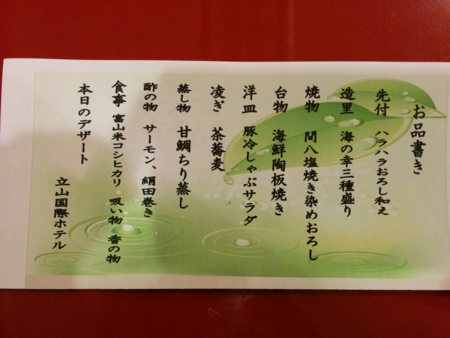 お品書き
先付　ハラハラおろし和え
造里　海の幸三種盛り
焼物　間八塩焼き染めおろし
台物　海鮮陶板焼き
洋皿　豚冷しゃぶサラダ
凌ぎ　茶蕎麦
蒸し物　甘鯛ちり蒸し
酢の物　サーモン、絹田巻き
食事　富山米コシヒカリ　吸い物　香の物
本日のデザート
立山国際ホテル